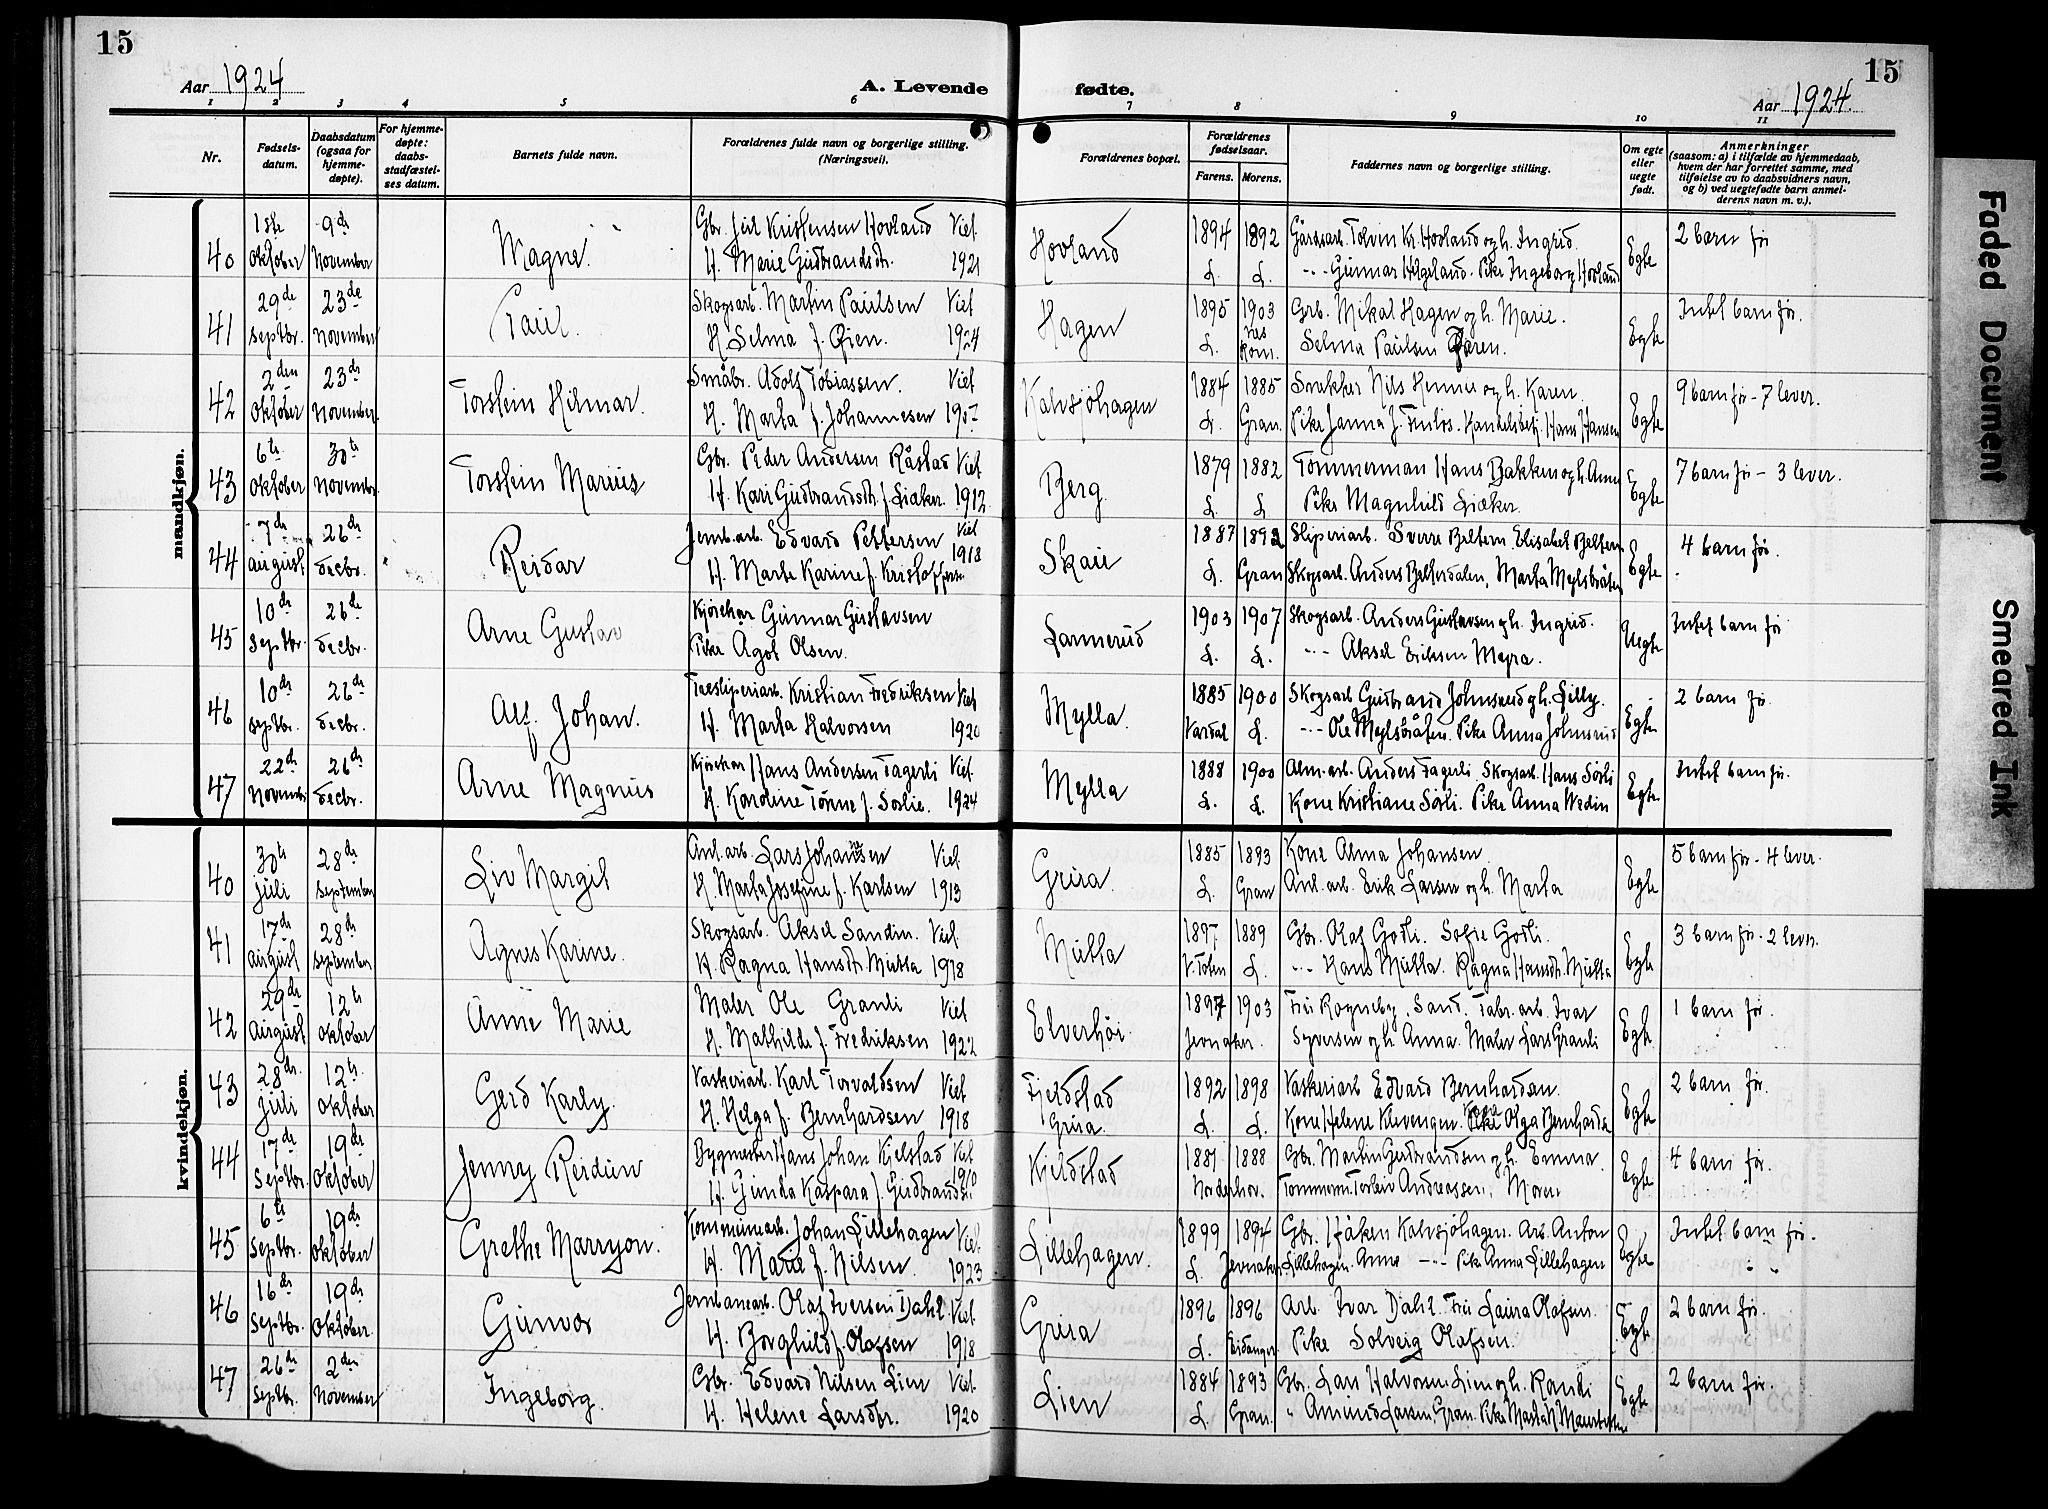 15
15
Aar 1924
A. Levende
fødte.
Aar 1924.
1 2 3 4 5 6 7 8 9 10 11
Nr.
Fødsels-
datum.
Daabsdatum
(ogsaa for
hjemme-
døpte).
For hjemme-
døpte:
daabs-
stadfæstel-
ses datum.
Barnets fulde navn.
Forældrenes fulde navn og borgerlige stilling.
(Næringsvei).
Forældrenes bopæl.
Forældrenes
fødselsaar.
Farens. Morens.
Faddernes navn og borgerlige stilling.
Om egte
eller
uegte
født.
Anmerkninger
(saasom: a) i tilfælde av hjemmedaab,
hvem der har forrettet samme, med
tilføielse av to daabsvidners navn,
og b) ved uegtefødte barn anmel-
derens navn m. v.).
mandkjøn.
40 1ste Oktober 9de November Magne. Gbr. Kristensen Hovland Viet
H. Marie Gudbrandsdtr. 1921
Hovland 1894 L. 1892 L. Gårdsarb. Tolvin Kr. Hovland og h. Ingrid.
Gunnar Helgeland. Pike Ingeborg Hovland Egte 2 barn før
41 29de Septbr. 23de November Paul. Skogsarb. Martin Paulsen Viet
H. Selma f. Øien. 1924
Hagen 1895 L. 1903 Nes Rom. Grb. Mikal Hagen og h. Marie.
Selma Paulsen Egte Intet barn før.
42 2den Oktober 23de November. Torstein Hilmar. Småbr. Adolf Tobiassen. Viet
H. Marta f. Johannesen 1907
Kalvsjøhagen 1884 L. 1885 Gran. Snekker Nils og h. Karen.
Pike Janna J. Handelsbetj. Hans Hansen Egte 9 barn før - 7 lever.
43 6te Oktober 30te November Torstein Marius Gbr. Peder Andersen Råstad Viet
H. Kari Gudbrandsdtr. f. Liaker. 1912
Berg. 1879 L. 1882 L Tømmerman Hans Bakken og h. Anna
Pike Magnhild Liaker. Egte 7 barn før - 3 lever.
44 7de august 26de decbr. Reidar Jernb.arb. Edvard Pettersen Viet
H. Marte Karine f. Kristoffersen 1918
Skau 1887 L. 1892 Gran Sliperiarb. Sverre Beltern Elisabet Beltern
Skogsarb. Anders Marta Mylsbråten Egte 4 barn før.
45 10de Septbr. 26de decbr. Arne Gustav Kjørekar Gunnar Gustavsen
Pike Ågot Olsen.
Lannerud 1903 L. 1907 L. Skogsarb. Anders Gustavsen og h. Ingrid.
Aksel Eriksen Myra. Uegte Intet barn før
46 10de septbr. 26de decbr. Alf Johan. Træsliperiarb. Kristian Fredriksen Viet
H. Marta Halvorsen 1920
Mylla. 1885 Vardal 1900 L. Skogsarb Gudbrand Johnsrud og h. Lilly.
Ole Mylsbråten. Pike Anna Johnsrud Egte 2 barn før.
47 22de November 26de decbr. Arne Magnus Kjørekar Hans Andersen Fagerli Viet.
H. Karoline Tonne f. Sørlie. 1924
Mylla 1888 L. 1900 L. Alm.arb. Anders Fagerli. Skogsarb. Hans Sørli
Kone Kristiane Sørli. Pike Anna Wedin Egte Intet barn før.
kvindekjøn.
40 30te juli 28de September Liv Margit Anl.arb. Lars Johansen Viet
H. Marta Josefine f. Karlsen 1913
Grua. 1885 L. 1893 Gran Kone Alma Johansen
Anl. arb. Erik Larsen og h. Marta Egte 5 barn før - 4 lever.
41 17de august 28de september Agnes Karine. Skogsarb. Aksel Sandin. Viet.
H. Ragna Hansdtr. Mutta 1918
Mutta 1897 V. Toten 1889 L. Gbr. Olaf Godli. Sofie Godli.
Hans Mutta. Ragna Hansdtr. Mutta Egte 3 barn før - 2 lever.
42 29de August 12te Oktober Anne Marie Maler Ole Granli Viet
H. Mathilde f. Fredriksen 1922
Elverhøi. 1897 1903 Jevnaker. Fru Rogneby, Sand. Fabr. arb. Ivar
Syversen og h. Anna. Maler Lars Granli Egte. 1 barn før.
43 28de juli 12te Oktober Gerd Karly. Vaskeriarb. Karl Torvaldsen Viet
H. Helga f. Bernhardsen 1918
Fjeldstad
Grua. 1892 L. 1898 L. Vaskeriarb Edvard Bernhardsen.
Kone Helene Klevengen. Kone Olga Bernhardsen Egte 2 barn før.
44 17de Septbr. 19de Oktober Jenny Reidun Bygmester Hans Johan Kjelstad Viet
H. Gunda Kaspara f. Gudbrands. 1910
Kjeldstad 1881 1888 Norderhov. Gbr. Martin Gudbrandsen og h. Emma.
Tømmerm. Torleiv Andreassen. Moren Egte 4 barn før.
45 6te Septbr. 19de Oktober Grethe Marryon. Kommunearb. Johan Lillehagen Viet
H. Marie f. Nilsen. 1923
Lillehagen. 1899 L. 1894 Jevnaker. Gbr. Håken Kalvsjøhagen. Arb. Anton
Lillehagen. Anne Pike Anna Lillehagen Egte Intet barn før.
46 16de Septbr. 19de Oktober. Gunvor Jernbanearb. Olaf Iversen Dahl Viet
H. Borghild f. Olafsen 1918
Grua 1896 L. 1896 Eidanger. Arb. Ivar Dahl. Fru Laura Olafsen.
Pike Solveig Olafsen. Egte 2 barn før.
47 26de Septbr. 2den November Ingeborg. Gbr. Edvard Nilsen Lien Viet
H. Helene Larsdtr. 1920
Lien 1884 L. 1893 Gran. Gbr. Lars Halvorsen Lien og h. Randi
Amund Larsen, Gran. Pike Marta Egte 2 barn før.
Faded Document
Smeared Ink